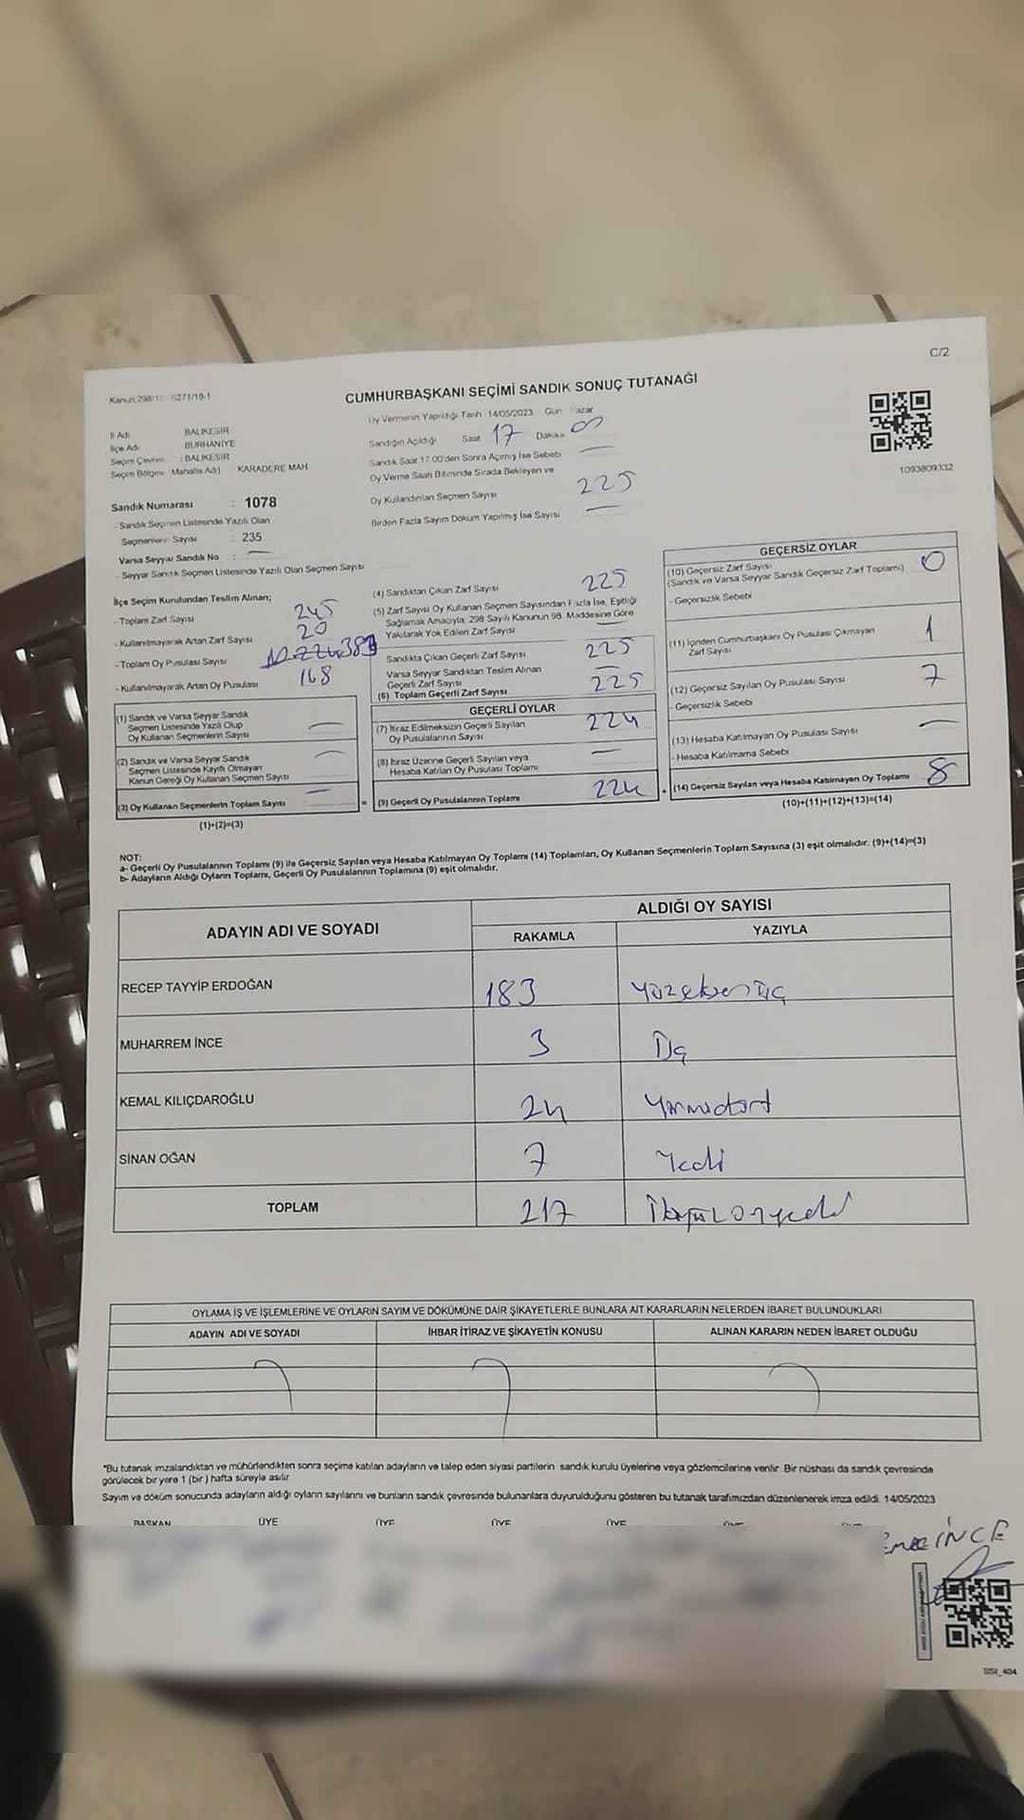 C/2
CUMHURBAŞKANI SEÇİMİ SANDIK SONUÇ TUTANAĞI
Oy Vermenin Yapıldığı Tarih 14/05/2023 Gün
Sandığın Açıldığı Saat 17 Dakika
Sandık Saat 17.00'den Sonra Açılmış İse Sebebi
Oy Verme Saati Bitiminde Sırada Bekleyen ve
Oy Kullandırılan Seçmen Sayısı 225
Birden Fazla Sayım Döküm Yapılmış İse Sayısı
1093809332
İl Adı BALIKESİR
İlçe Adı BURHANİYE
Seçim Çevresi : BALIKESİR
Seçim Bölgesi (Mahalle Adı) KARADERE MAH
Sandık Numarası : 1078
- Sandık Seçmen Listesinde Yazılı Olan
Seçmenlerin Sayısı : 235
Varsa Seyyar Sandık No :
- Seyyar Sandık Seçmen Listesinde Yazılı Olan Seçmen Sayısı
İlçe Seçim Kurulundan Teslim Alınan;
- Toplam Zarf Sayısı 245
- Kullanılmayarak Artan Zarf Sayısı 20
- Toplam Oy Pusulası Sayısı
- Kullanılmayarak Artan Oy Pusulası 168
(1) Sandık ve Varsa Seyyar Sandık
Seçmen Listesinde Yazılı Olup
Oy Kullanan Seçmenlerin Sayısı
(2) Sandık ve Varsa Seyyar Sandık
Seçmen Listesinde Kayıtlı Olmayan
Kanun Gereği Oy Kullanan Seçmen Sayısı
(3) Oy Kullanan Seçmenlerin Toplam Sayısı
(1)+(2)=(3)
(4) Sandıktan Çıkan Zarf Sayısı 225
(5) Zarf Sayısı Oy Kullanan Seçmen Sayısından Fazla İse, Eşitliği
Sağlamak Amacıyla, 298 Sayılı Kanunun 98. Maddesine Göre
Yakılarak Yok Edilen Zarf Sayısı
Sandıkta Çıkan Geçerli Zarf Sayısı 225
Varsa Seyyar Sandıktan Teslim Alınan
Geçerli Zarf Sayısı
(6) Toplam Geçerli Zarf Sayısı 225
GEÇERLİ OYLAR
(7) İtiraz Edilmeksizin Geçerli Sayılan
Oy Pusulalarının Sayısı 224
(8) İtiraz Üzerine Geçerli Sayılan veya
Hesaba Katılan Oy Pusulası Toplamı
= (9) Geçerli Oy Pusulalarının Toplamı 224
GEÇERSİZ OYLAR
(10) Geçersiz Zarf Sayısı 0
(Sandık ve Varsa Seyyar Sandık Geçersiz Zarf Toplamı)
- Geçersizlik Sebebi
(11) İçinden Cumhurbaşkanı Oy Pusulası Çıkmayan
Zarf Sayısı 1
(12) Geçersiz Sayılan Oy Pusulası Sayısı 7
- Geçersizlik Sebebi
(13) Hesaba Katılmayan Oy Pusulası Sayısı
- Hesaba Katılmama Sebebi
+ (14) Geçersiz Sayılan veya Hesaba Katılmayan Oy Toplamı 8
(10)+(11)+(12)+(13)=(14)
NOT:
a- Geçerli Oy Pusulalarının Toplamı (9) ile Geçersiz Sayılan veya Hesaba Katılmayan Oy Toplamı (14) Toplamları, Oy Kullanan Seçmenlerin Toplam Sayısına (3) eşit olmalıdır. (9)+(14)=(3)
b- Adayların Aldığı Oyların Toplamı, Geçerli Oy Pusulalarının Toplamına (9) eşit olmalıdır.
ADAYIN ADI VE SOYADI
ALDIĞI OY SAYISI
RAKAMLA YAZIYLA
RECEP TAYYİP ERDOĞAN 183 Yüzseksenüç
MUHARREM İNCE 3 Üç
KEMAL KILIÇDAROĞLU 24 Yirmidört
SİNAN OĞAN 7 Yedi
TOPLAM 217 İkiyüzonyedi
OYLAMA İŞ VE İŞLEMLERİNE VE OYLARIN SAYIM VE DÖKÜMÜNE DAİR ŞİKAYETLERLE BUNLARA AİT KARARLARIN NELERDEN İBARET BULUNDUKLARI
ADAYIN ADI VE SOYADI İHBAR İTİRAZ VE ŞİKAYETİN KONUSU ALINAN KARARIN NEDEN İBARET OLDUĞU
*Bu tutanak imzalandıktan ve mühürlendikten sonra seçime katılan adayların ve talep eden siyasi partilerin sandık kurulu üyelerine veya gözlemcilerine verilir. Bir nüshası da sandık çevresinde
görülecek bir yere 1 (bir) hafta süreyle asılır
Sayım ve döküm sonucunda adayların aldığı oyların sayılarını ve bunların sandık çevresinde bulunanlara duyurulduğunu gösteren bu tutanak tarafımızdan düzenlenerek imza edildi. 14/05/2023
BAŞKAN ÜYE ÜYE ÜYE ÜYE
İNCE